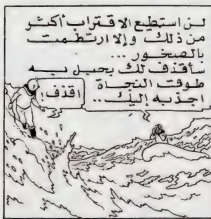 لن استطيع الاقتراب أكثر
من ذلك وإلا ارتطمت
بالصخور...
سأقذف لك بحبل به
طوق النجاة
اجذبه إليك...
اقذف!